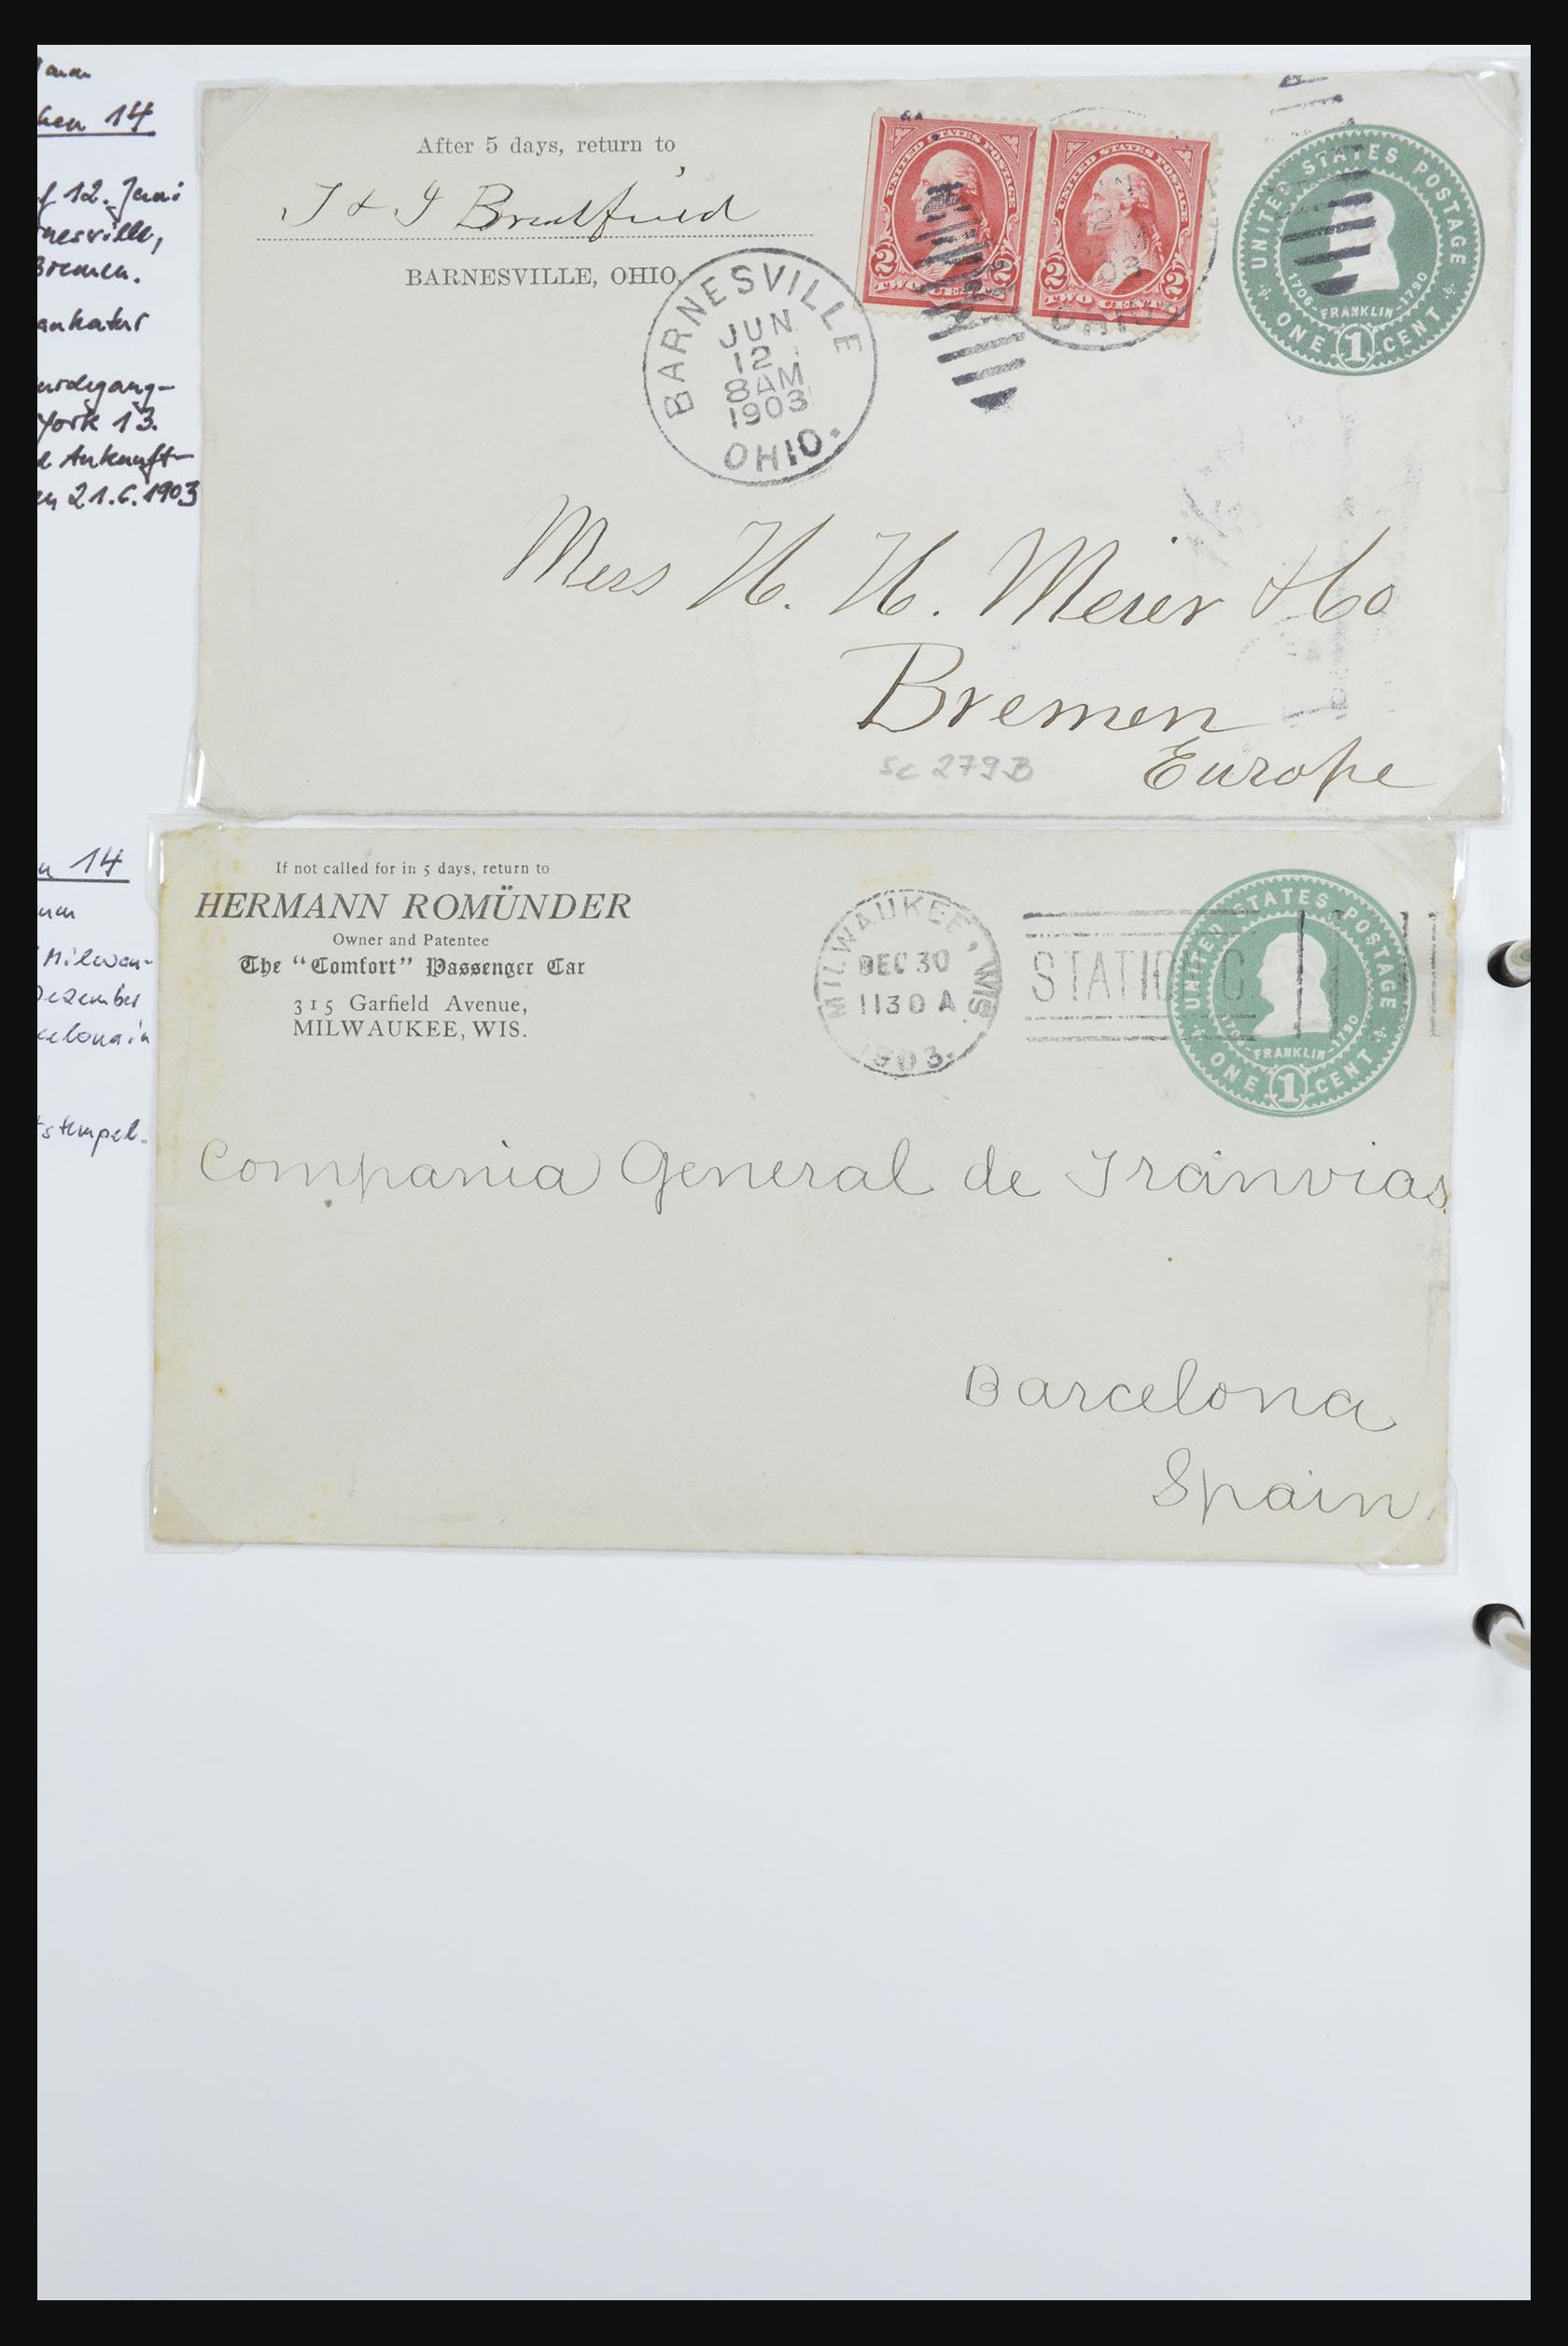 hen 14
12. Juni
Bremen.
York 13.
Ankunft-
21.6.1903
After 5 days, return to
J & J Bradfield
BARNESVILLE, OHIO.
BARNESVILLE
JUN
12
8AM
1903
OHIO.
UNITED STATES POSTAGE
2 2
TWO CENTS
UNITED STATES POSTAGE
2 2
TWO CENTS
OHIO
UNITED STATES POSTAGE
1706 - FRANKLIN - 1790
ONE 1 CENT
Mess H. H. Meier & Co
Bremen
Europe
Sc 279B
14
Milwau-
Dezember
stempel.
If not called for in 5 days, return to
HERMANN ROMÜNDER
Owner and Patentee
The "Comfort" Passenger Car
315 Garfield Avenue,
MILWAUKEE, WIS.
MILWAUKEE, WIS.
DEC 30
1130 A
1903.
STATION C.
UNITED STATES POSTAGE
1706 - FRANKLIN - 1790
ONE 1 CENT
Compania General de Tranvias
Barcelona
Spain